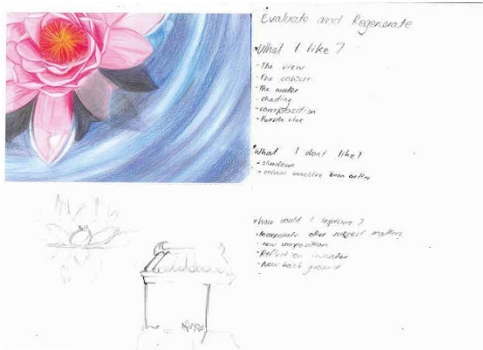 Evaluate and Regenerate
What I like?
- The view
- The colour
- The water
- shading
- composition
What I dont like?
- shadows
- colour been better
How would I improve?
- Incorporate other subject matters
- new composition
- Reflection in water
- New back ground